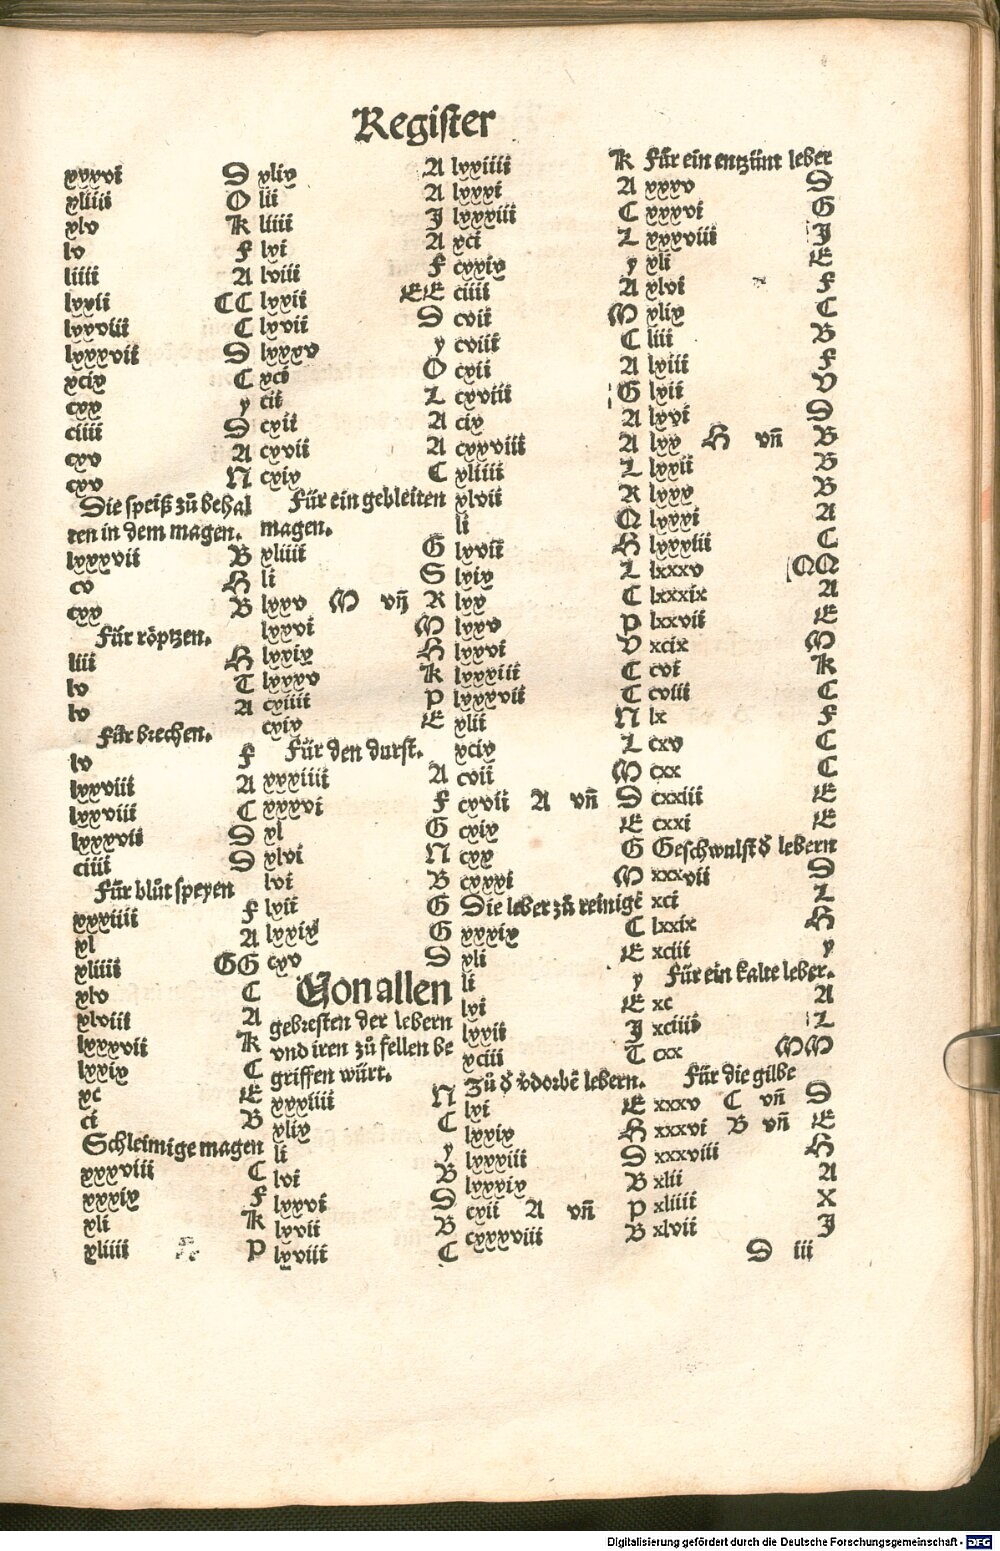 Register
xxxvi D
xliiii O
xlv K
lv F
liiii A
lxxii CC
lxxviii C
lxxxvii D
xcix C
cxx y
ciiii D
cxv A
cxv N
Die speiß zů behal
ten in dem magen.
lxxxvii B
cv H
cxx B
Für röptzen.
liii H
lv T
lv A
Für brechen.
lv F
lxxviii A
lxxviii C
lxxxvii D
ciiii D
Für blůt speyen
xxxiiii F
xl A
xliiii GG
xlv C
xlviii A
lxxxvii K
lxxix C
xc E
ci B
Schleimige magen
xxxviii C
xxxix F
xli K
xliiii P
xlix A
lii A
liiii J
lxi A
lviii F
lxxii EE
lxvii D
lxxxv y
xci O
cii L
cxii A
cxvii A
cxix C
Für ein gebleiten
magen.
xliiii G
li S
lxxv M vñ R
lxxvi M
lxxix H
lxxxv K
cxiiii P
cxix E
Für den durst.
xxxiiii A
xxxvi F
xl G
xlvi N
lvi B
lvii G
lxxix G
cxv D
Von allen
gebresten der lebern
vnd iren zů fellen be
griffen würt.
xxxiiii N
xlix C
li y
lvi B
lxxvi D
lxvii B
lxviii C
lxxiiii K
lxxxi A
lxxxiii C
xci L
cxxix y
ciiii A
cvii M
cviii C
cxii A
cxviii G
cix A
cxxviii A
xliiii L
xlvii R
li Q
lxvii H
lxix L
lxx C
lxxv P
lxxvi V
lxxxiii C
lxxxvii C
xlii N
xcix L
cvii M
cxvii A vñ D
cxix E
cxx G
cxxxi M
Die leber zů reinigẽ
xxxix C
xli E
li y
lvi E
lxvii J
xciii T
Zů d vdorbẽ lebern.
lvi E
lxxix H
lxxxiii D
lxxxix B
cxii A vñ P
cxxxviii B
Für ein entzünt leber
xxxv D
xxxvi G
xxxviii J
xli E
xlvi F
xlix C
liii B
lxiii F
lxii V
lxvi D
lxx H vñ B
lxxii B
lxxx B
lxxxi A
lxxxiii C
lxxxv QQ
lxxxix A
lxxvii E
xcix M
cvi K
cviii C
lx F
cxv C
cxx C
cxxiii E
cxxi E
Geschwulst d lebern
xxxvii D
xci L
lxxix H
xciii y
Für ein kalte leber.
xc A
xciiii L
cxx MM
Für die gilbe
xxxv C vñ D
xxxvi B vñ E
xxxviii H
xlii A
xliiii X
xlvii J
D iii
Digitalisierung gefördert durch die Deutsche Forschungsgemeinschaft - DFG